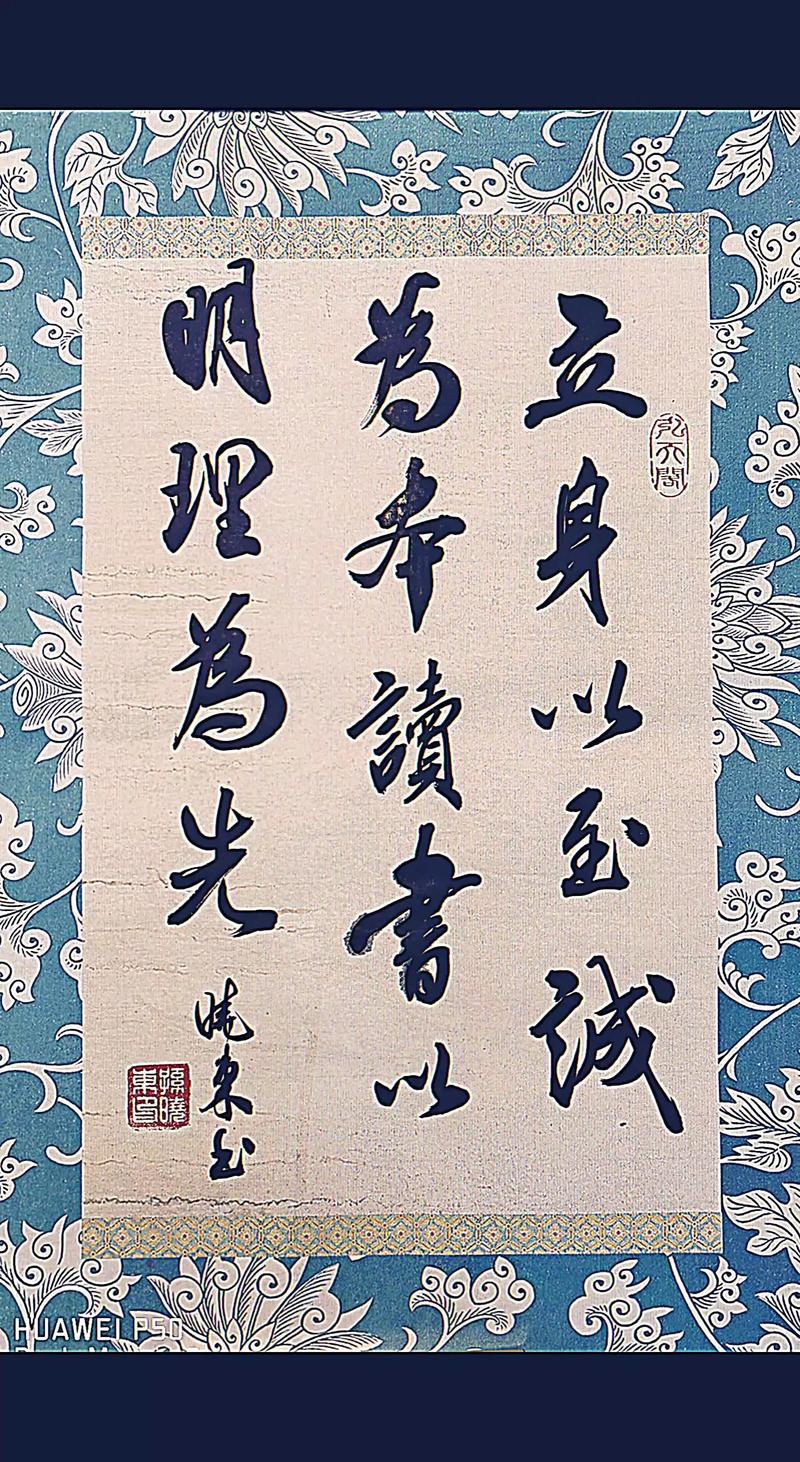 立身以至誠
為本讀書以
明理為先
曉東書
孫曉東印
HUAWEI P50